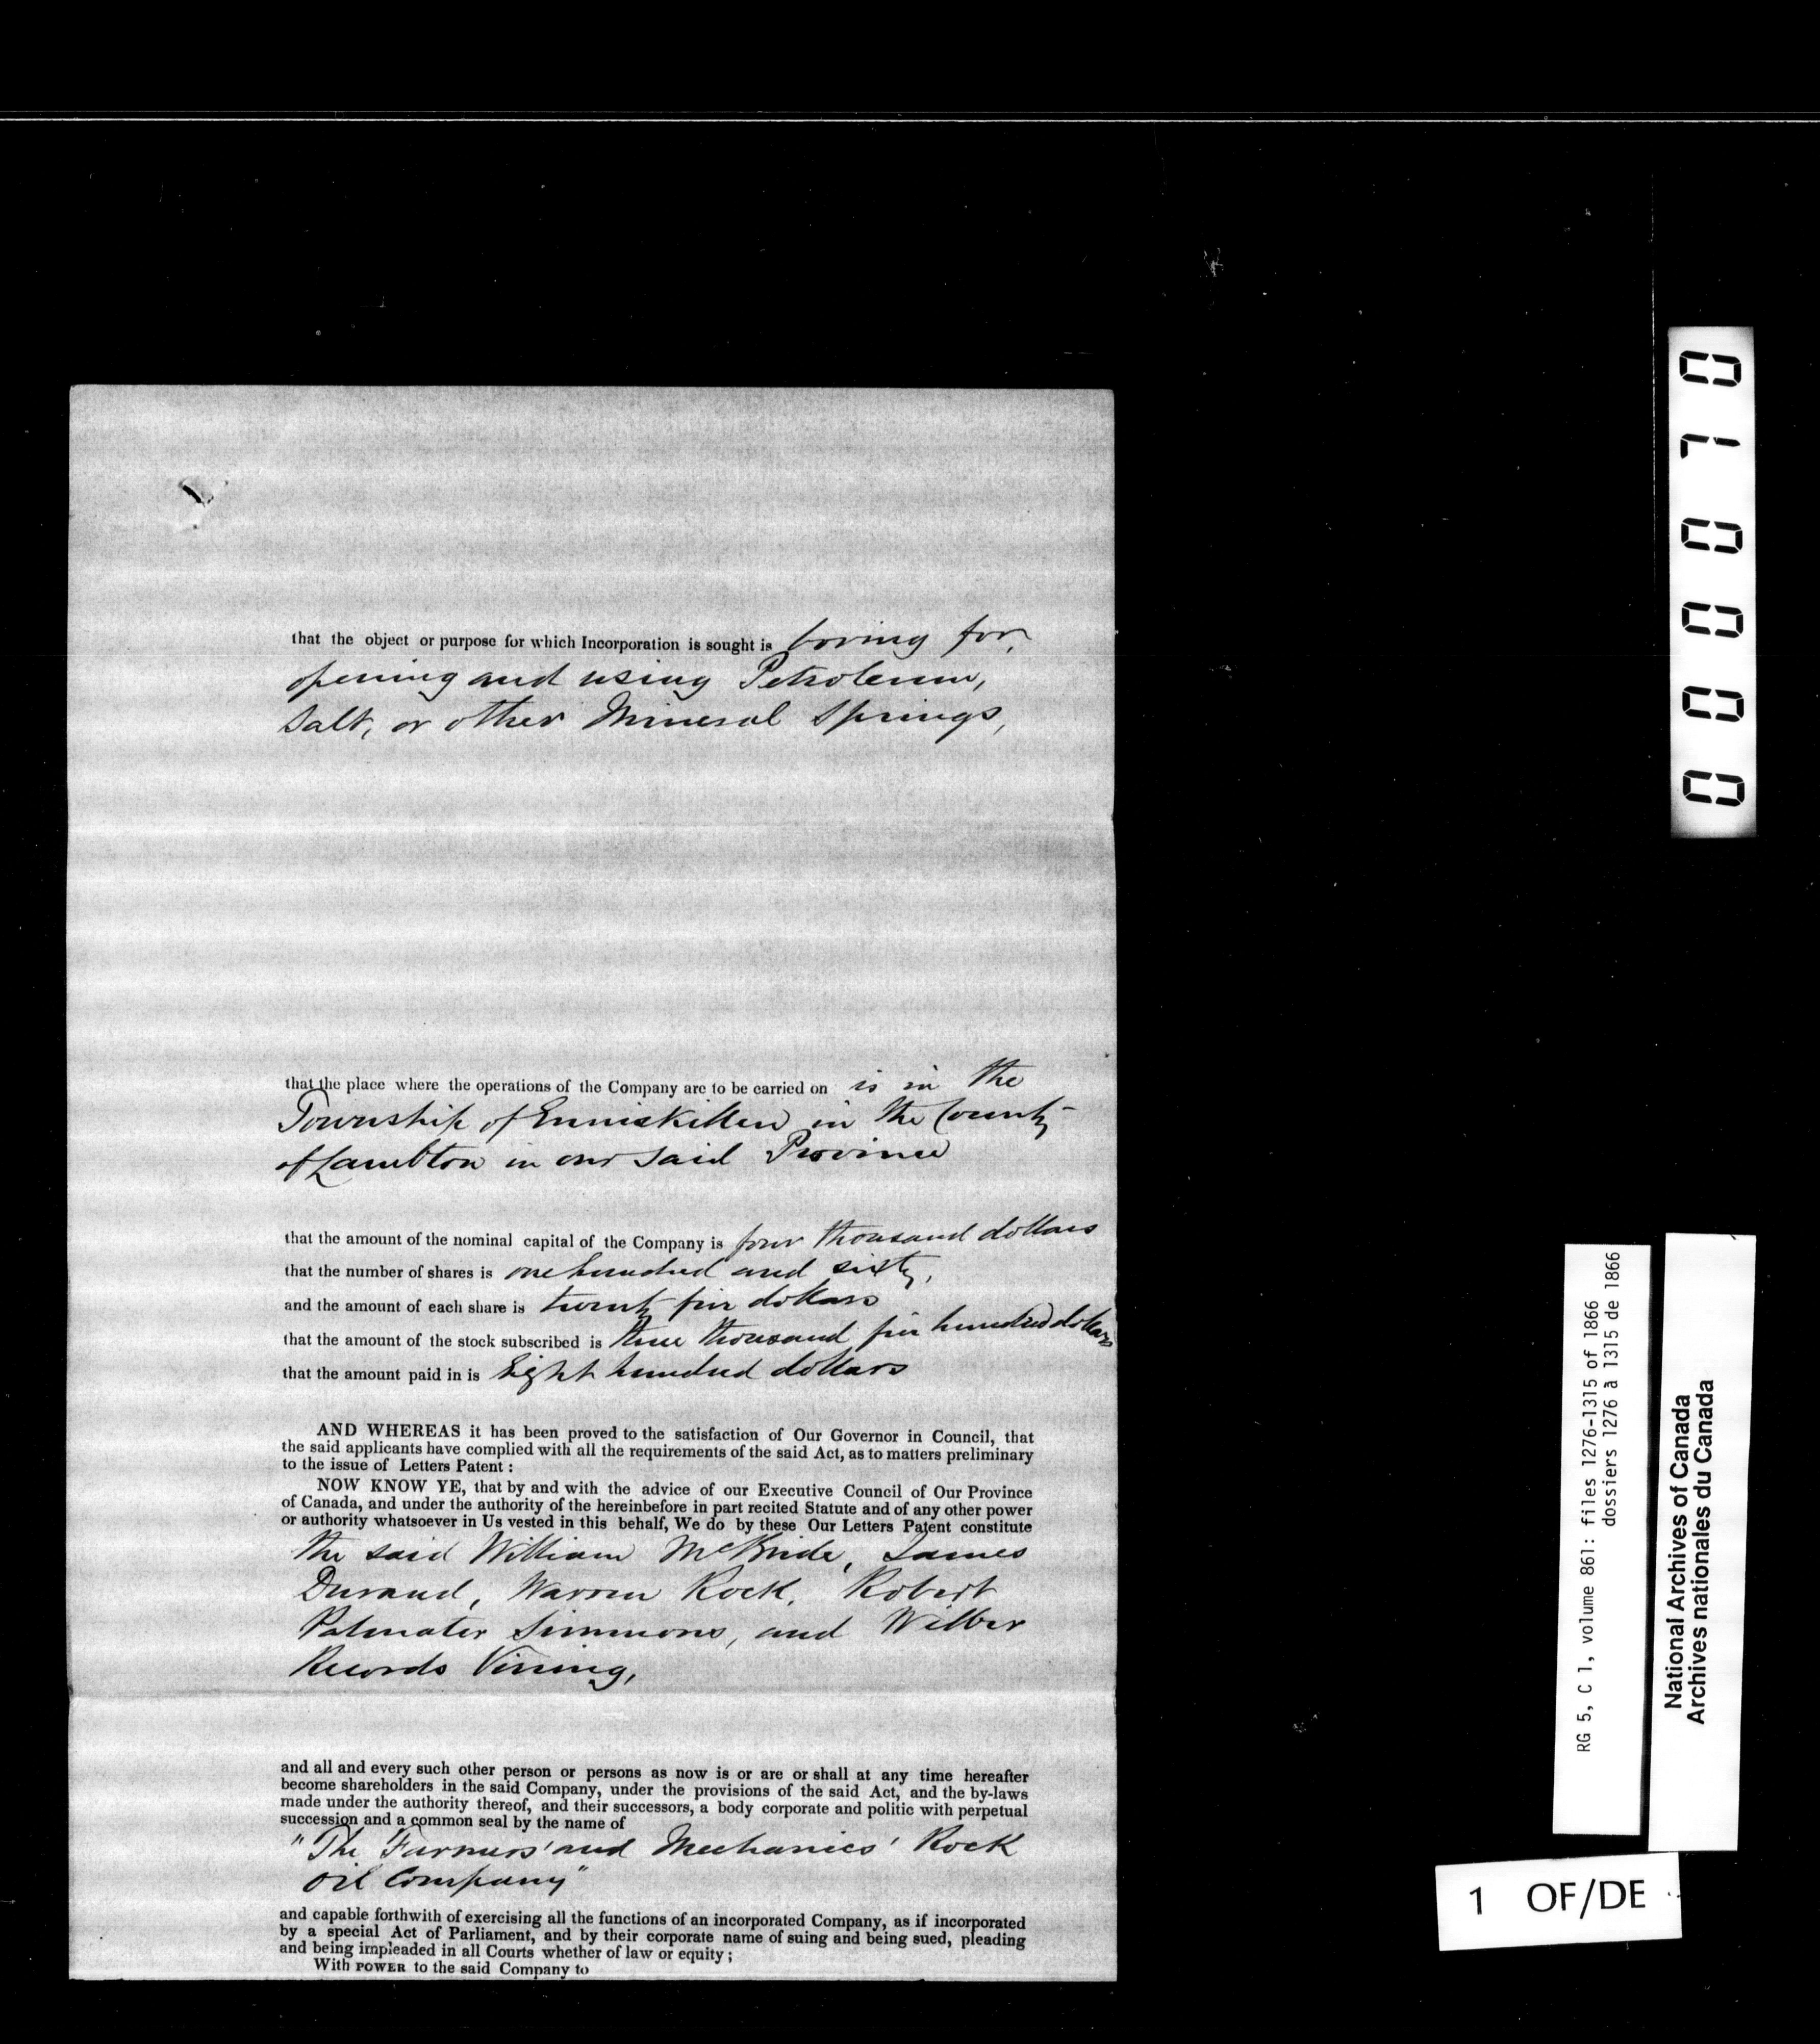 that the object or purpose for which Incorporation is sought is boring for,
opening and using Petroleum,
Salt, or other Mineral Springs,
that the place where the operations of the Company are to be carried on is in the
Township of Enniskillen in the County
of Lambton in our said Province
that the amount of the nominal capital of the Company is four thousand dollars
that the number of shares is one hundred and sixty,
and the amount of each share is twenty five dollars
that the amount of the stock subscribed is three thousand five hundred dollars
that the amount paid in is Eight hundred dollars
AND WHEREAS it has been proved to the satisfaction of Our Governor in Council, that
the said applicants have complied with all the requirements of the said Act, as to matters preliminary
to the issue of Letters Patent :
NOW KNOW YE, that by and with the advice of our Executive Council of Our Province
of Canada, and under the authority of the hereinbefore in part recited Statute and of any other power
or authority whatsoever in Us vested in this behalf, We do by these Our Letters Patent constitute
the said William McBride, James
Durand, Warren Rock, Robert
Palmater Simmons, and Wilber
Records Vining,
and all and every such other person or persons as now is or are or shall at any time hereafter
become shareholders in the said Company, under the provisions of the said Act, and the by-laws
made under the authority thereof, and their successors, a body corporate and politic with perpetual
succession and a common seal by the name of
"The Farmers' and Mechanics' Rock
Oil Company"
and capable forthwith of exercising all the functions of an incorporated Company, as if incorporated
by a special Act of Parliament, and by their corporate name of suing and being sued, pleading
and being impleaded in all Courts whether of law or equity ;
With POWER to the said Company to
000070
RG 5, C 1, volume 861: files 1276-1315 of 1866
dossiers 1276 à 1315 de 1866
National Archives of Canada
Archives nationales du Canada
1 OF/DE